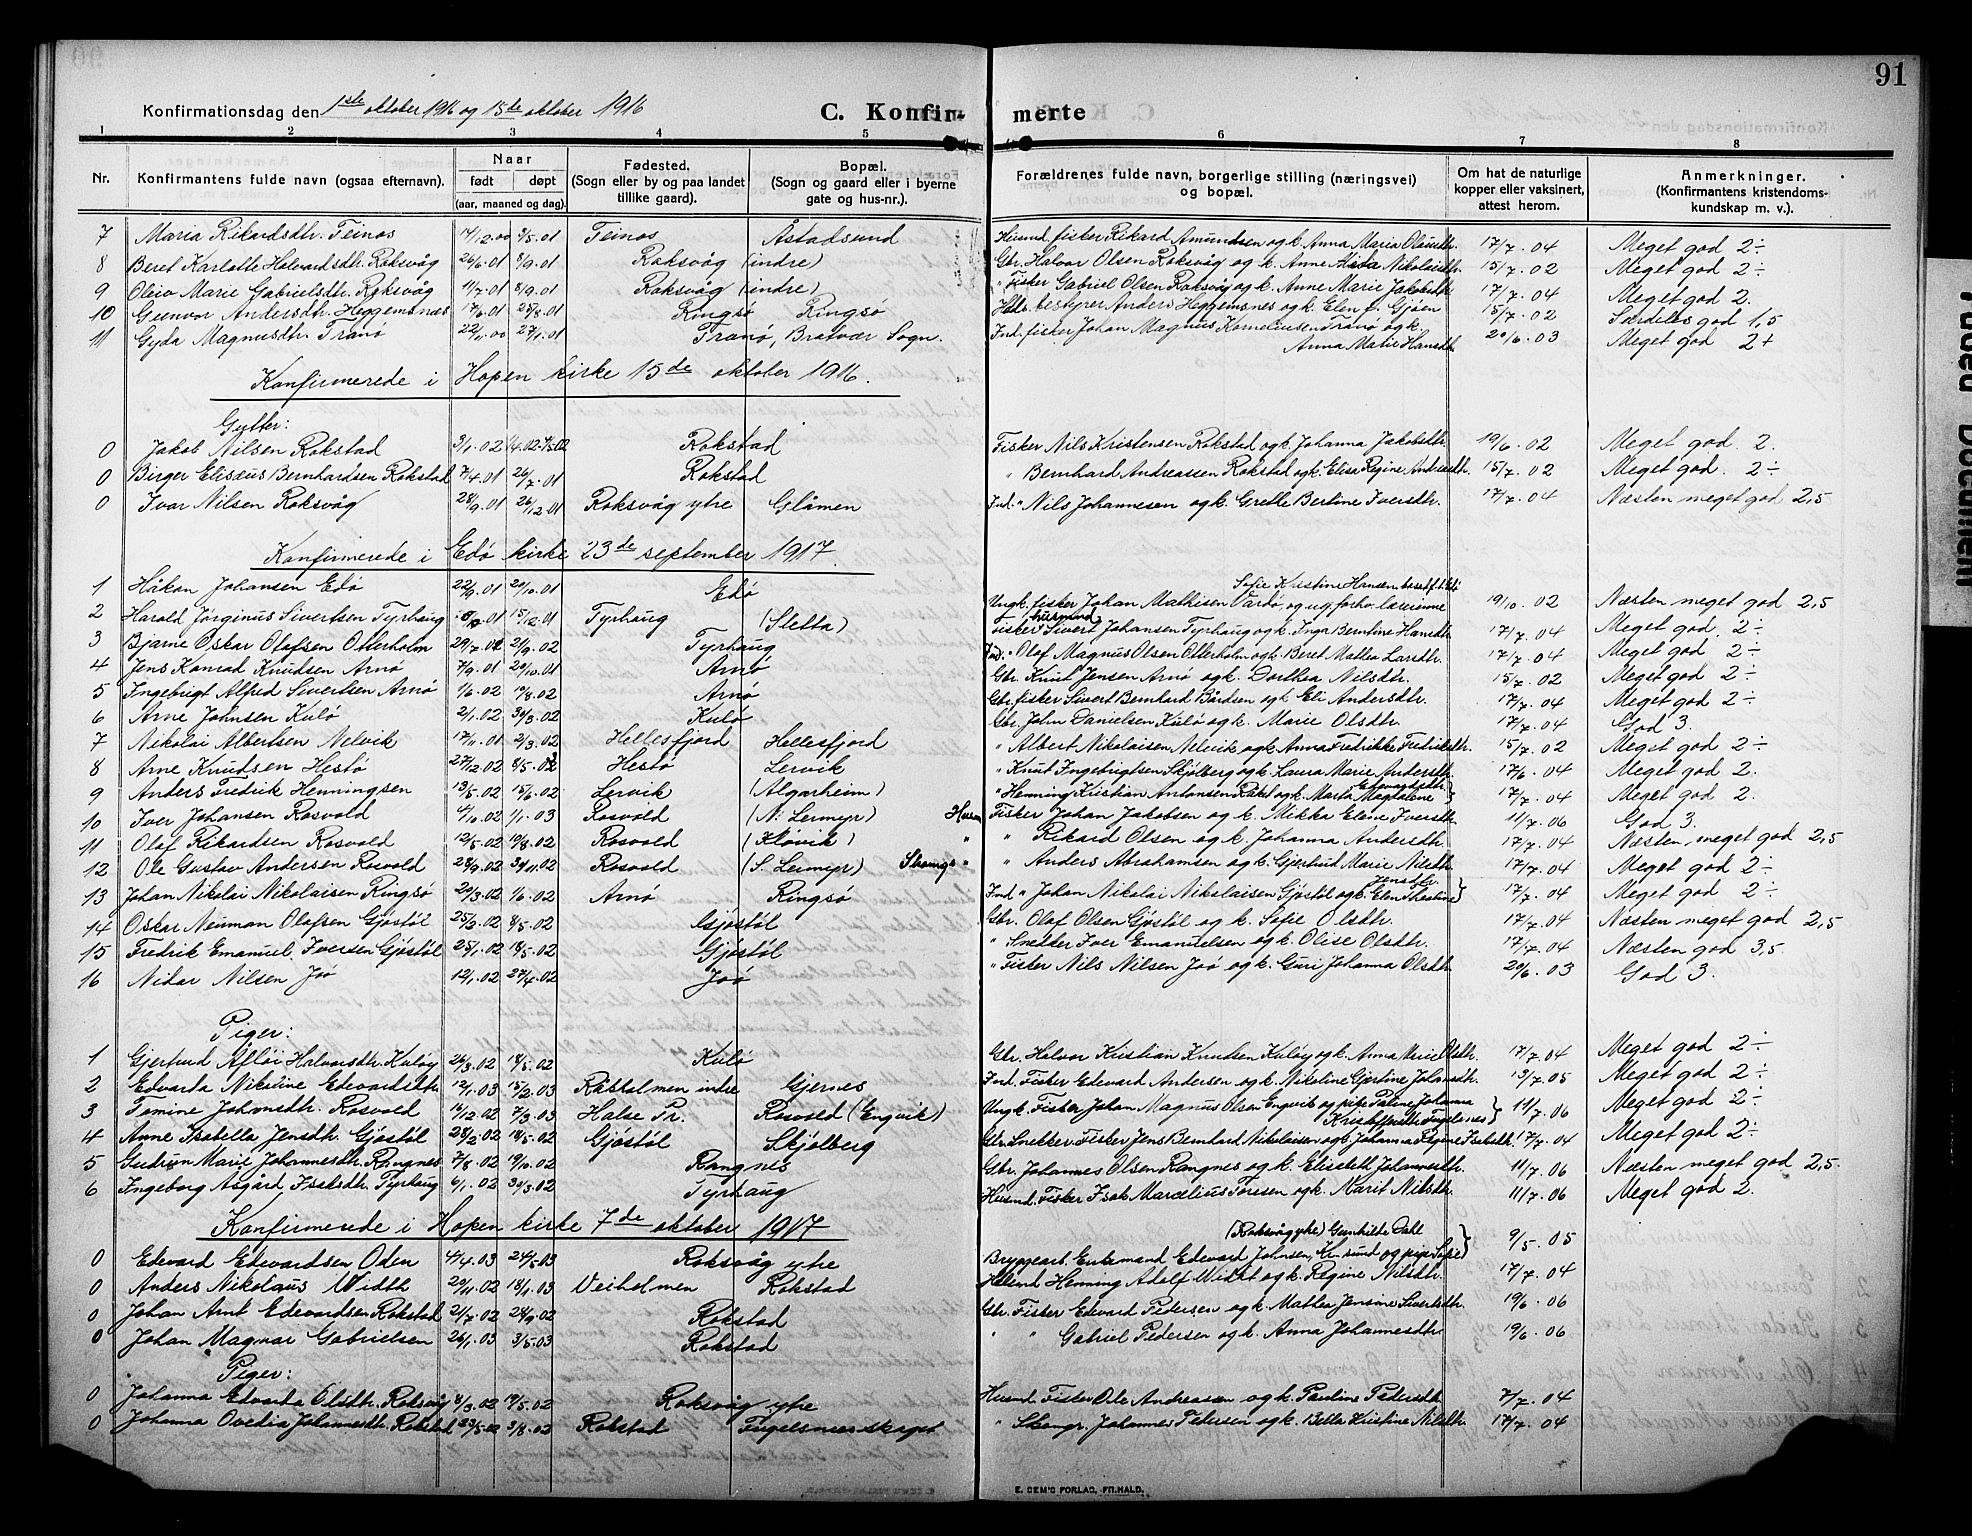 91
Konfirmationsdag den 1ste oktober 1916 og 15de oktober 1916
C. Konfirmerte
1 2 3 4 5 6 7 8
Nr. Konfirmantens fulde navn (ogsaa efternavn). Naar født døpt (aar, maaned og dag). Fødested. (Sogn eller by og paa landet tillike gaard). Bopæl. (Sogn og gaard eller i byerne gate og hus-nr.). Forældrenes fulde navn, borgerlige stilling (næringsvei) og bopæl. Om hat de naturlige kopper eller vaksinert, attest herom. Anmerkninger. (Konfirmantens kristendomskundskap m. v.).
7 Maria Rikardsdtr. Teinos 14/12.00 9/5.01 Teinos Åstadsund Husmd. fisker Rikard Amundsen og k. Anna Maria Olausdtr. 17/7.04 Meget god 2÷
8 Beret Karlotte Halvardsdtr. Roksvåg 26/6.01 8/9.01 Roksvåg (indre) Gbr. Halvor Olsen Roksvåg og k. Anne Nikolaidtr. 15/7.02 Meget god 2÷
9 Oleiv Marie Gabrielsdtr. Roksvåg 11/7.01 8/9.01 Roksvåg (indre) " Fisker Gabriel Olsen Roksvåg og k. Anne Marie Jakobsdtr. 17/7.04 Meget god 2.
10 Gunvor Andersdtr. Heggemsnes 17/6.01 25/8.01 Ringsø Ringsø bestyrer Anders Heggemsnes og k. Elen f. Gjøen 15/7.02 Særdeles god 1,5
11 Gyda Magnusdtr. Tranø 22/11.00 27/1.01 Tranø, Bratvær Sogn. Ind. fisker Johan Magnus Korneliusen Tranø og k. Anna Marie Hansdtr. 20/6.03 Meget god 2+
Konfirmerede i Hopen kirke 15de oktober 1916.
Gutter:
0 Jakob Nilsen Rokstad 3/1.02 Rokstad Fisker Nils Kristensen Rokstad og k. Johanna Jakobsdtr. 19/6.02 Meget god. 2.
0 Birger Elisæus Bernhardsen Rokstad 7/4.01 26/7.01 Rokstad " Bernhard Andreassen Rokstad og k. Elisa Regine Andreasdtr. 15/7.02 Meget god. 2÷
0 Ivar Nilsen Roksvåg 28/9.01 26/12.01 Roksvåg ytre Glåmen Ind. " Nils Johannesen og k. Grethe Bertine Iversdtr. 17/7.04 Næsten meget god 2,5
Konfirmerede i Edø kirke 23de september 1917.
1 Håkon Johansen Edø 22/9.01 20/10.01 Edø Ungk. fisker Johan Mathisen Vardø, og ug. forhv. lærerinne Sofie Kristine Hansen 19/10.02 Næsten meget god 2,5
2 Harald Jørginus Sivertsen Tyrhaug 15/12.01 Tyrhaug (Sletta) Fisker husmand Sivert Johansen Tyrhaug og k. Inga Berntine Hansdtr. 17/7.04 Meget god. 2÷
3 Bjarne Oskar Olafsen Otterholm 29/7.02 21/9.02 Tyrhaug Ind. " Olaf Magnus Olsen Otterholm og k. Beret Mathea Larsdtr. 17/7.04 Meget god 2÷
4 Jens Konrad Knudsen Arnø 7/9.01 20/10.01 Arnø Gbr. Knut Jensen Arnø og k. Dorthea Nilsdtr. 15/7.02 Meget god 2÷
5 Ingebrigt Alfred Sivertsen Arnø 1/6.02 10/8.02 Arnø Gbr. fisker Sivert Bernhard Bårdsen og k. Eli Andersdtr. 17/7.04 Meget god 2÷
6 Arne Johnsen Kulø 2/1.02 30/3.02 Kulø Gbr. John Danielsen Kulø og k. Marie Olsdtr. 17/7.04 God 3.
7 Nikolai Albertsen Nelvik 17/11.01 2/3.02 Hellesfjord Hellesfjord " Albert Nikolaisen Nelvik og k. Anna Fredrikke Fredriksdtr. 15/7.02 Meget god 2÷
8 Arne Knudsen Hestø 27/12.02 8/5.02 Hestø Lervik " Knut Ingebrigtsen Skjølberg og k. Laura Marie Andersdtr. 17/6.04 Meget god 2.
9 Anders Fredrik Henningsen 13/5.02 15/6.02 Lervik (Algarheim) " Henning Kristian Antonsen og k. Marta Magdalene Edvardsdtr. 17/7.04 Meget god 2.
10 Iver Johansen Rosvold 4/10.02 1/1.03 Rosvold (N. Leimyr) Husm. Fisker Johan Jakobsen og k. Mikka Eline Iversdtr. 11/7.06 God 3.
11 Olaf Rikardsen Rosvold 12/5.02 10/8.02 Rosvold (Kløvik) " " Rikard Olsen og k. Johanna Andersdtr. 17/7.04 Næsten meget god 2,5
12 Ole Gustav Andersen Rosvold 28/9.02 30/11.02 Rosvold (S. Leimyr) Strengs " " Anders Abrahamsen og k. Gjertrud Marie Nilsdtr. 17/7.04 Meget god 2÷
13 Johan Nikolai Nikolaisen Ringsø 20/3.02 1/6.02 Arnø Ringsø Ind. " Johan Nikolai Nikolaisen Gjøstøl og k. Elen Theatine Jensdtr. 17/7.04 Meget god 2÷
14 Oskar Neuman Olafsen Gjøstøl 25/2.02 8/5.02 Gjøstøl Gbr. Olaf Olsen Gjøstøl og k. Sofie Olsdtr. 17/7.04 Næsten meget god 2,5
15 Fredrik Emanuel Iversen Gjøstøl 25/1.02 18/5.02 Gjøstøl " Snekker Iver Emanuelsen og k. Olise Olsdtr. 17/7.04 Næsten god 3,5
16 Nidar Nilsen Joø 12/1.02 27/4.02 Joø " Fisker Nils Nilsen Joø og k. Guri Johanna Olsdtr. 20/6.03 God 3.
Piger:
1 Gjertrud Afloi Halvorsdtr. Kuløy 26/3.02 18/5.02 Kulø Gbr. Halvor Kristian Knudsen Kuløy og k. Anna Marie Olsdtr. 17/7.04 Meget god 2÷
2 Edvarda Nikoline Edvardsdtr. 12/1.03 15/2.03 Råstolmen indre Gjernes Ind. Fisker Edvard Andersen og k. Nikoline Gjertine Johansdtr. 13/7.05 Meget god 2÷
3 Tomine Johansdtr. Rosvold 14/12.02 7/3.03 Halse Pr. Rosvold (Engvik) Ungk. Fisker Johan Magnus Olsen Engvik og pike Paline Johanna Kristoffersdtr. Fuglesnes 11/7.06 Meget god 2÷
4 Anne Isabella Jensdtr. Gjøstøl 28/2.02 18/5.02 Gjøstøl Skjølberg Gbr. Snekker Fisker Jens Bernhard Nikolaisen og k. Johanna Regine Isaksdtr. 17/7.04 Meget god 2÷
5 Gudrun Marie Johannesdtr. Rangnes 7/8.02 19/10.02 Rangnes Gbr. Johannes Olsen Rangnes og k. Elisabeth Johannesdtr. 11/7.06 Næsten meget god 2,5.
6 Ingeborg Asgård Isaksdtr. Tyrhaug 6/1.02 30/3.02 Tyrhaug Husmd. Fisker Isak Marcelius Toresen og k. Marit Nilsdtr. 11/7.06 Meget god 2.
Konfirmerede i Hopen kirke 7de oktober 1917
0 Edvard Edvardsen Oden 4/4.03 24/5.03 Roksvåg ytre Bryggearb. Enkemand Edvard Johnsen, Kr.sund og pige Sofie (Roksvåg ytre) Gunhilde Dahl 9/5.05
0 Anders Nikolaus Width 20/11.02 18/1.03 Veiholmen Rokstad Henning Adolf Widt og k. Regine Nilsdtr. 17/7.04
0 Johan Arnt Edvardsen Rokstad 21/7.02 28/9.02 Rokstad Gbr. Fisker Edvard Pedersen og k. Mathea Jensine Sivertsdtr. 19/6.06
0 Johan Magnar Gabrielsen 26/1.03 3/5.03 Rokstad " " Gabriel Pedersen og k. Anna Johannesdtr. 19/6.06
Piger:
0 Johanna Edvarda Olsdtr. Roksvåg 8/3.02 19/5.02 Roksvåg ytre Husmd. Fisker Ole Andreassen og k. Pauline Pedersdtr. 7/7.04
0 Johanna Ovedia Johannesdtr. Rokstad 23/5.02 3/8.02 Rokstad Fugelsnesskaget " Johannes Pedersen og k. Bella Kristine Nilsdtr. 17/7.04
E. SEM'S FORLAG, FR.HALD.